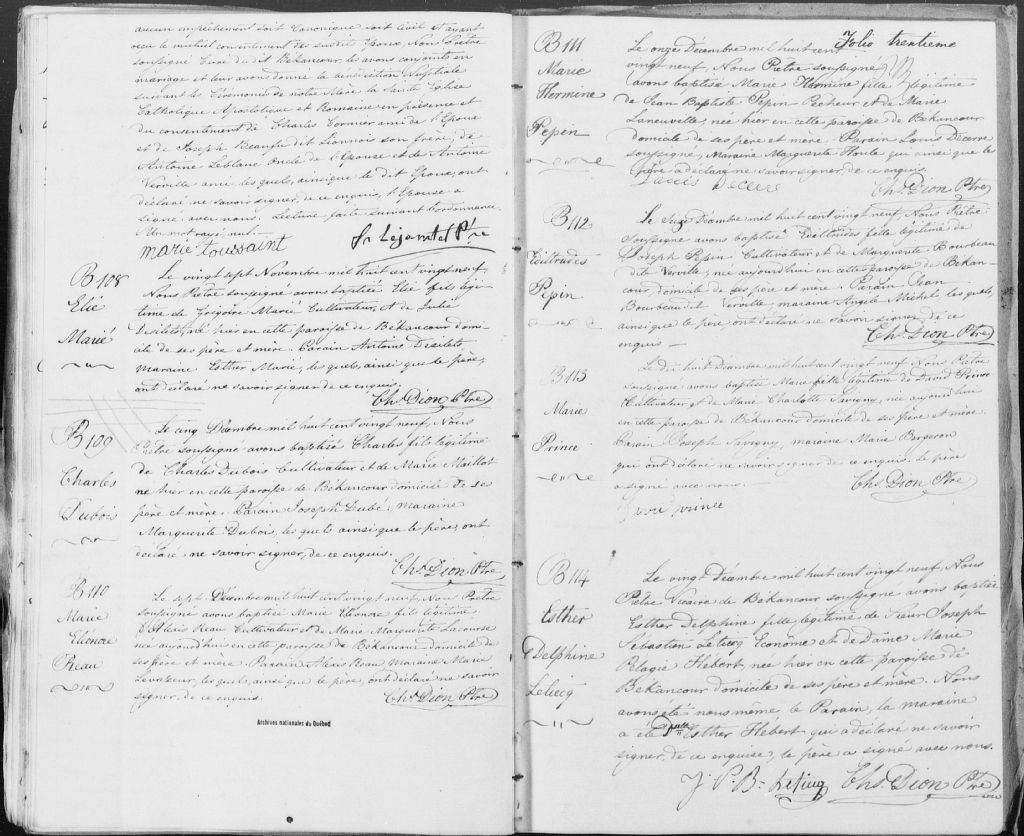 aucun empêchement soit Canonique soit Civil et ayant
recu le mutuel consentement des susdit Epoux, Nous Prêtre
soussigné Curé du dit Békancour, les avons conjoints en
mariage et leur avons donné la bénédiction Nuptiale
suivant les Cérémonies de notre Mère la Sainte Eglise
Catholique Apostolique et Romaine en présence et
du consentement de Charles Cormier ami de l'Epoux
et de Joseph Beaufis dit Lionnois son frère, de
Antoine Leblanc Oncle de l'Epouse et de Antoine
Verville ami les quels, ainsi que le dit Epoux, ont
déclaré ne savoir signer, de ce enquis, l'Epouse a
signé avec nous. Lecture faite suivant l'ordonnance.
Un mot rayé nul.
marie toussaint
Ptre
B 108
Elie
Marié
Le vingt sept Novembre mil huit cent vingt neuf,
Nous Prêtre soussigné avons baptisé Elie fils légi-
time de Grégoire Marié Cultivateur, et de Julie
Desilets, né hier en cette paroisse de Békancour domi-
cile de ses père et mère. Parain Antoine Desilets
maraine Esther Marié, les quels, ainsi que le père,
ont déclaré ne savoir signer de ce enquis.
Chs. Dion Ptre
B 109
Charles
Dubois
Le cinq Décembre mil huit cent vingt neuf, Nous
Prêtre soussigné avons baptisé Charles fils légitime
de Charles Dubois Cultivateur et de Marie Maillot
né hier en cette paroisse de Békancour domicile de ses
père et mère. Parain Joseph Dubé, maraine
Marguerite Dubois, les quels ainsi que le père, ont
déclaré ne savoir signer, de ce enquis.
Chs. Dion Ptre
B 110
Marie
Eléonore
Reau
Le sept Décembre mil huit cent vingt neuf, Nous Prêtre
soussigné avons baptisé Marie Eléonore fille légitime
d'Alexis Reau Cultivateur et de Marie Marguerite Lacourse
née aujourd'hui en cette paroisse de Békancour domicile de
ses père et mère. Parain Alexis Reau Maraine Marie
Levasseur, les quels, ainsi que le père, ont déclaré ne savoir
signer, de ce enquis.
Chs. Dion Ptre
Archives nationales du Québec
Folio trentième
B 111
Marie
Hermine
Pepin
Le onze Décembre mil huit cent
vingt neuf, Nous Prêtre soussigné
avons baptisé Marie Hermine fille légitime
de Jean Baptiste Pepin Pêcheur et de Marie
Laneuville, née hier en cette paroisse de Békancour
domicile de ses père et mère. Parain Louis Décerre
soussigné, Maraine Marguerite Houle qui ainsi que le
père a déclaré ne savoir signer, de ce enquis.
Chs. Dion Ptre
B 112
Edittrudes
Pepin
Le Seize Décembre mil huit cent vingt neuf, Nous Prêtre
soussigné avons baptisé Edittrudes fille légitime de
Joseph Pepin Cultivateur et de Marguerite Bourbeau
dit Verville, née aujourd'hui en cette paroisse de Békan-
cour, domicile de ses père et mère. Parain Jean
Bourbeau dit Verville, maraine Angèle Michel les quels,
ainsi que le père, ont déclaré ne savoir signer de ce
enquis —
Chs. Dion Ptre
B 113
Marie
Prince
Le Dix huit Décembre mil huit cent vingt neuf Nous Prêtre
soussigné avons baptisé Marie fille légitime de David Prince
Cultivateur et de Marie Charlotte Savigny, née aujourd'hui
en cette paroisse de Békancour domicile de ses père et mère.
Parain Joseph Savigny, maraine Marie Bergeron
qui ont déclaré ne savoir signer de ce enquis. le père
a signé avec nous.
Chs. Dion Ptre
prince
B 114
Esther
Delphine
Leticq
Le vingt Décembre mil huit cent vingt neuf, Nous
Prêtre Vicaire de Békancour soussigné avons baptisé
Esther Delphine fille légitime de Sieur Joseph
Sébastien Leticq Econôme et de Dame Marie
Pelagie Hébert, née hier en cette paroisse de
Békancour domicile de ses père et mère. Nous
avons été nous même le Parain, la maraine
a été Esther Hébert qui a déclaré ne savoir
signer, de ce enquise, le père a signé avec nous.
Chs. Dion Ptre